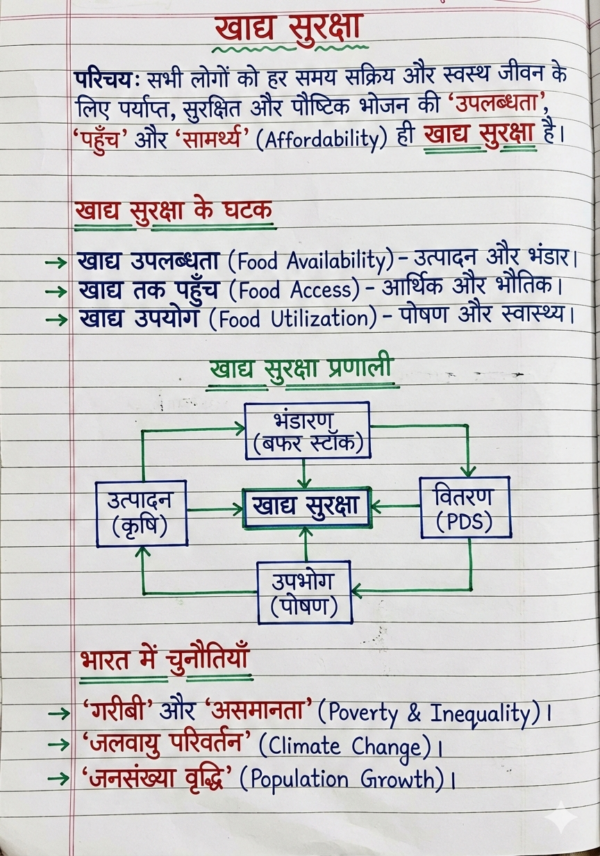 खाद्य सुरक्षा
परिचय: सभी लोगों को हर समय सक्रिय और स्वस्थ जीवन के
लिए पर्याप्त, सुरक्षित और पौष्टिक भोजन की 'उपलब्धता',
'पहुँच' और 'सामर्थ्य' (Affordability) ही खाद्य सुरक्षा है।
खाद्य सुरक्षा के घटक
→ खाद्य उपलब्धता (Food Availability) – उत्पादन और भंडार।
→ खाद्य तक पहुँच (Food Access) – आर्थिक और भौतिक।
→ खाद्य उपयोग (Food Utilization) – पोषण और स्वास्थ्य।
खाद्य सुरक्षा प्रणाली
भंडारण
(बफर स्टॉक)
उत्पादन
(कृषि)
खाद्य सुरक्षा
वितरण
(PDS)
उपभोग
(पोषण)
भारत में चुनौतियाँ
→ 'गरीबी' और 'असमानता' (Poverty & Inequality)।
→ 'जलवायु परिवर्तन' (Climate Change)।
→ 'जनसंख्या वृद्धि' (Population Growth)।